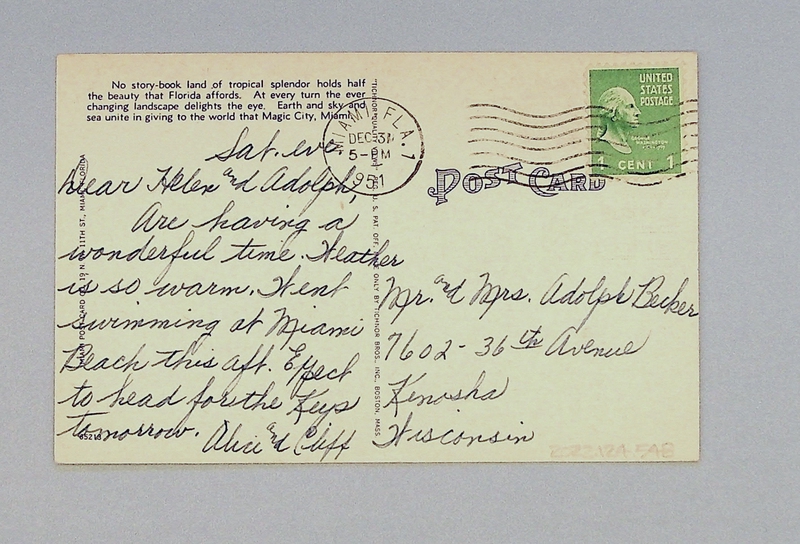 No story-book land of tropical splendor holds half
the beauty that Florida affords. At every turn the ever
changing landscape delights the eye. Earth and sky and
sea unite in giving to the world that Magic City, Miami.
Sat. eve.
Dear Helen and Adolph,
Are having a
wonderful time. Weather
is so warm. Went
swimming at Miami
Beach this aft. Expect
to head for the Keys
tomorrow. Alice and Cliff
65213
MIAMI POST CARD CO., 19 N. 11TH ST., MIAMI, FLORIDA
U. S. PAT. OFF. ONLY BY TICHNOR BROS., INC., BOSTON, MASS
MIAMI, FLA. 1
DEC 31
5-PM
1951
UNITED
STATES
POSTAGE
WASHINGTON
1 CENT 1
POST CARD
Mr. and Mrs. Adolph Becker
7602-36th Avenue
Kenosha
Wisconsin